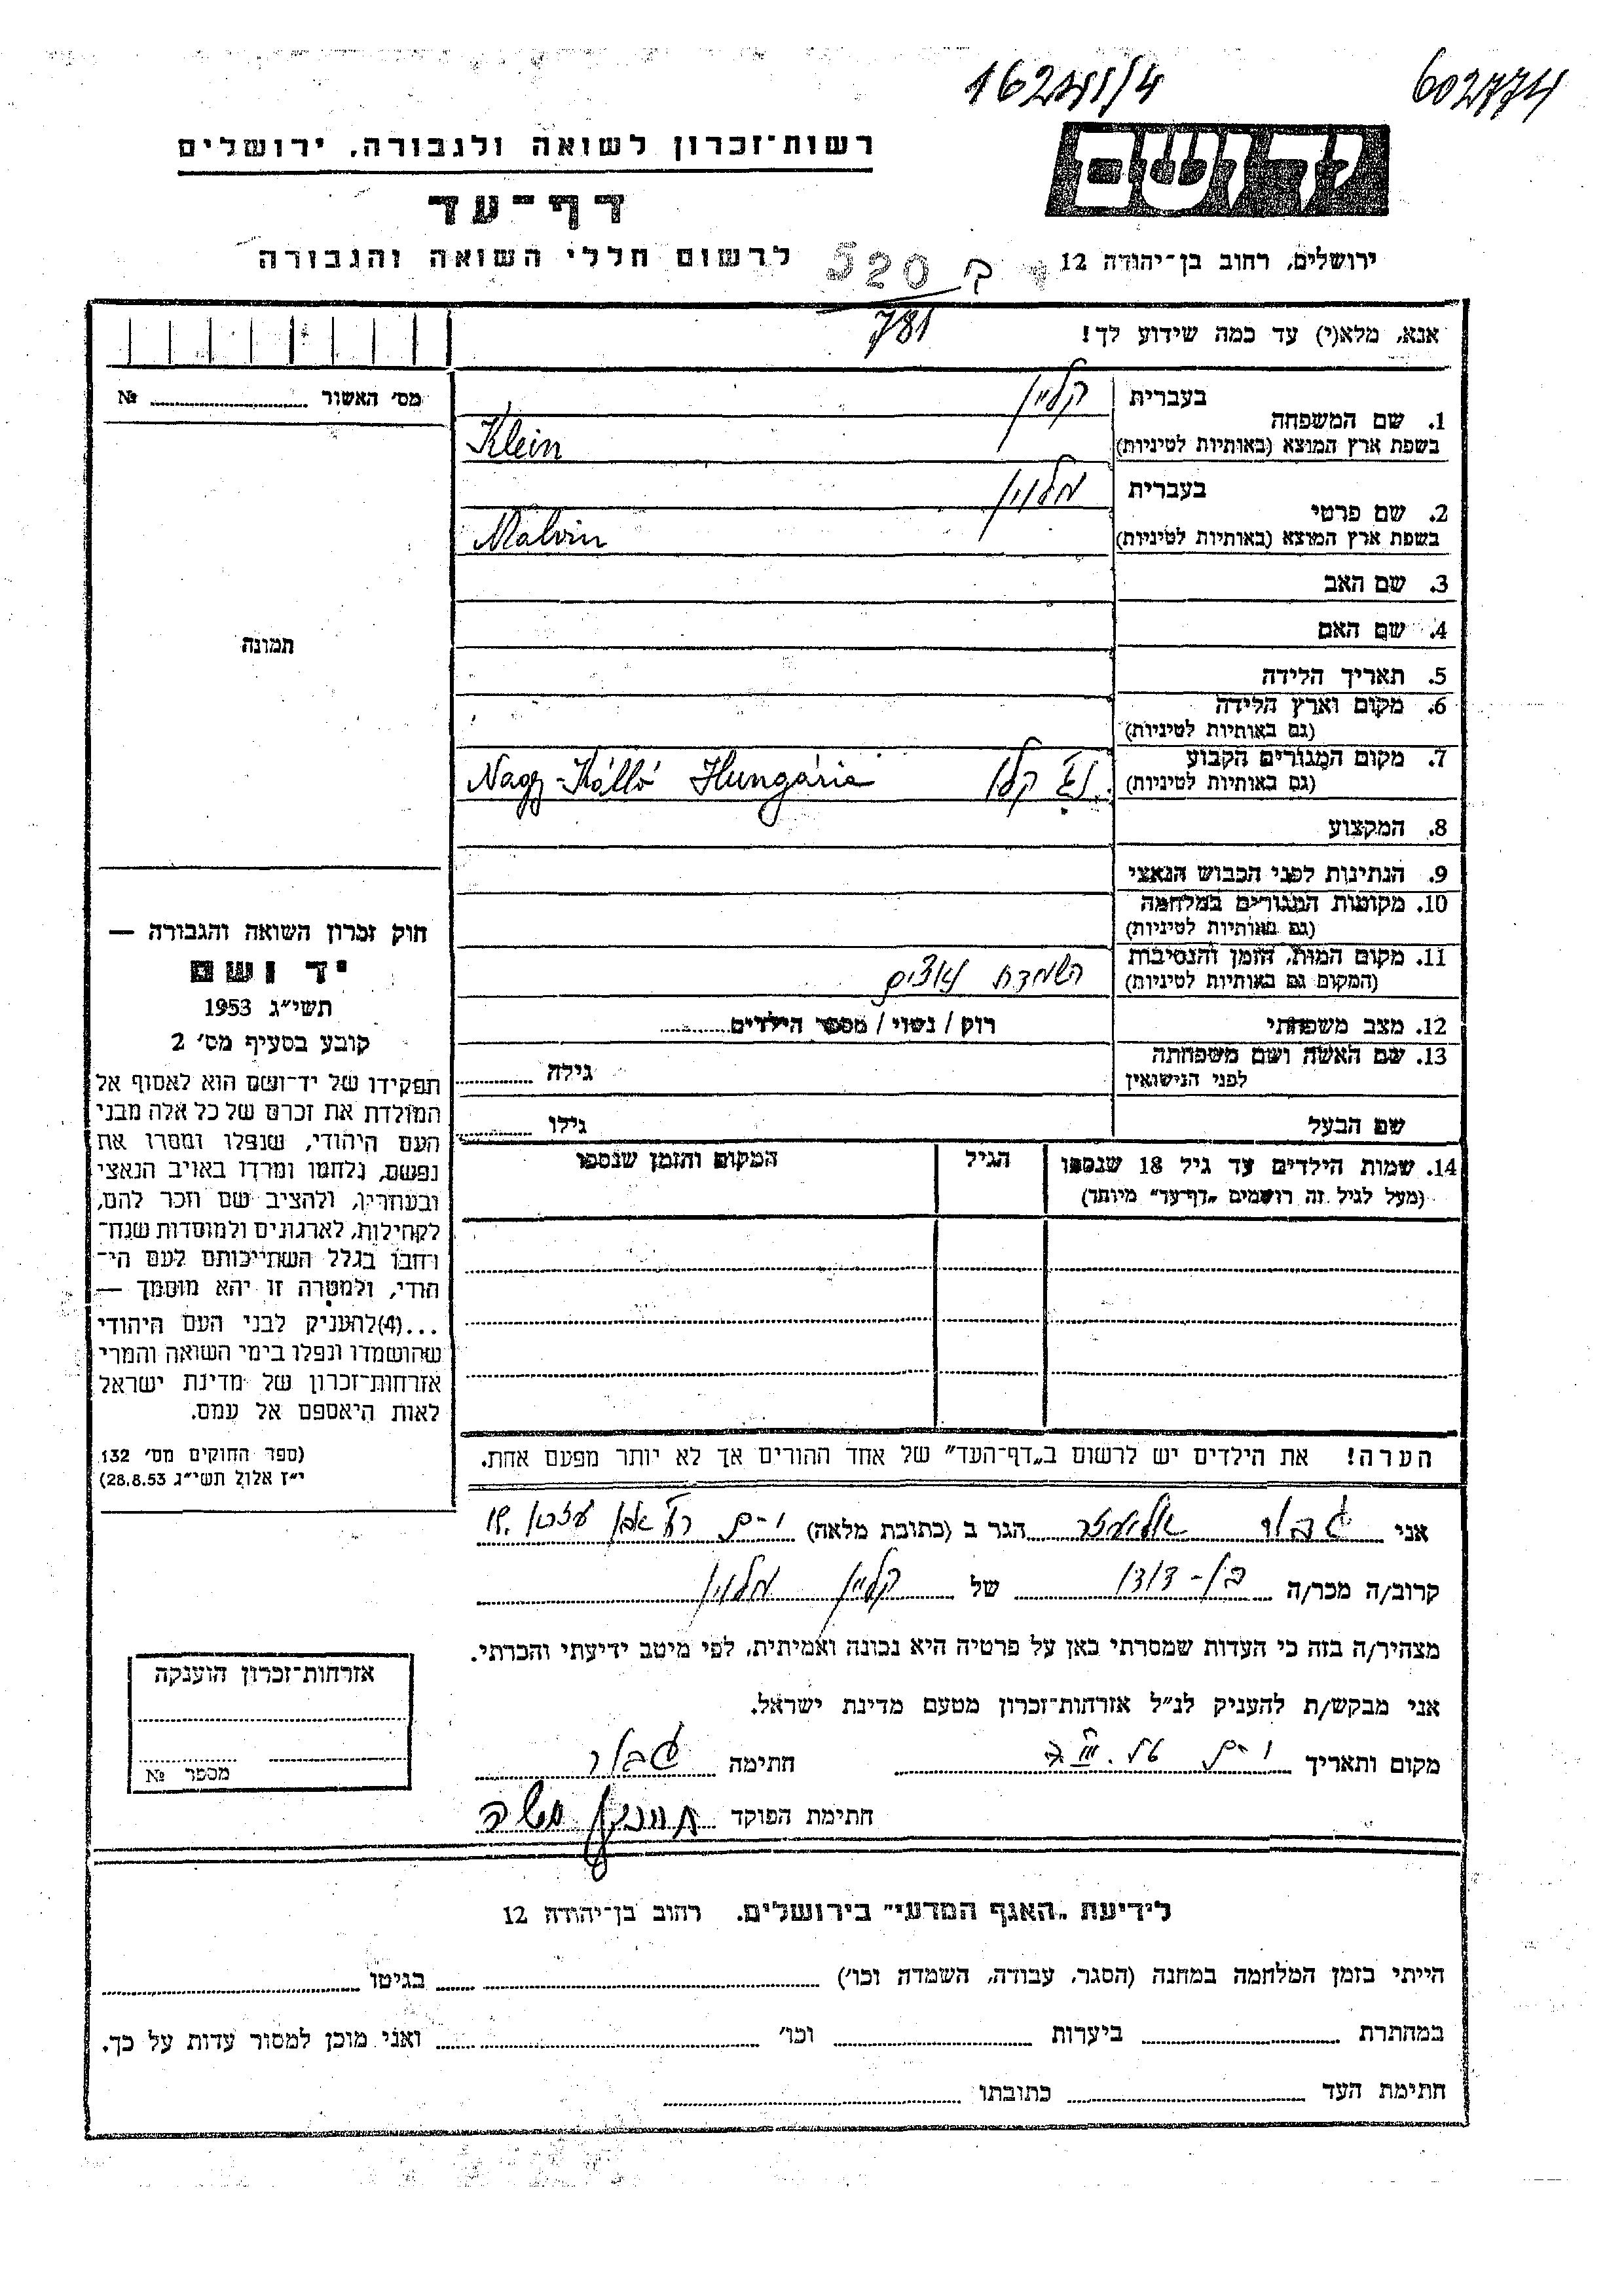 602774
רשות־זכרון לשואה ולגבורה, ירושלים
יד ושם
דף־עד
ירושלים, רחוב בן־יהודה 12
ק 520
לרשום חללי השואה והגבורה
781
אנא, מלא(י) עד כמה שידוע לך!
מס׳ האשור № 
1. שם המשפחה
בעברית קליין
בשפת ארץ המוצא (באותיות לטיניות) Klein
2. שם פרטי
בעברית מלוין
בשפת ארץ המוצא (באותיות לטיניות) Malvin
3. שם האב
4. שם האם
תמונה
5. תאריך הלידה
6. מקום וארץ הלידה
(גם באותיות לטיניות)
7. מקום המגורים הקבוע
(גם באותיות לטיניות) נג׳ קלו Nagy-Kálló Hungária
8. המקצוע
9. הנתינות לפני הכבוש הנאצי
10. מקומות המגורים במלחמה
(גם באותיות לטיניות)
11. מקום המות, הזמן והנסיבות
(המקום גם באותיות לטיניות) השמדת נאצים
12. מצב משפחתי רוק / נשוי / מספר הילדים
13. שם האשה ושם משפחתה
לפני הנישואין גילה
שם הבעל גילו
14. שמות הילדים עד גיל 18 שנספו
(מעל לגיל זה רושמים „דף־עד” מיוחד)
הגיל
המקום והזמן שנספו
חוק זכרון השואה והגבורה —
יד ושם
תשי״ג 1953
קובע בסעיף מס׳ 2
תפקידו של יד־ושם הוא לאסוף אל
המולדת את זכרם של כל אלה מבני
העם היהודי, שנפלו ומסרו את
נפשם, נלחמו ומרדו באויב הנאצי
ובעוזריו, ולהציב שם וזכר להם,
לקהילות, לארגונים ולמוסדות שנח־
רחבו בגלל השתייכותם לעם הי־
הודי, ולמטרה זו יהא מוסמך —
...(4)להעניק לבני העם היהודי
שהושמדו ונפלו בימי השואה והמרי
אזרחות־זכרון של מדינת ישראל
לאות היאספם אל עמם.
(ספר החוקים מס׳ 132
י״ז אלול תשי״ג 28.8.53)
הערה! את הילדים יש לרשום ב„דף־העד” של אחד ההורים אך לא יותר מפעם אחת.
אני אליעזר הגר ב (כתובת מלאה) י-ם אבן עזרא 19
קרוב/ה מכר/ה בן-דוד של קליין מלוין
מצהיר/ה בזה כי העדות שמסרתי כאן על פרטיה היא נכונה ואמיתית, לפי מיטב ידיעתי והכרתי.
אני מבקש/ת להעניק לנ״ל אזרחות־זכרון מטעם מדינת ישראל.
מקום ותאריך י-ם חתימה
חתימת הפוקד
אזרחות־זכרון הוענקה
מספר №
לידיעת „האגף המדעי” בירושלים. רחוב בן־יהודה 12
הייתי בזמן המלחמה במחנה (הסגר, עבודה, השמדה וכו׳) בגיטו
במחתרת ביערות וכו׳ ואני מוכן למסור עדות על כך.
חתימת העד כתובתו